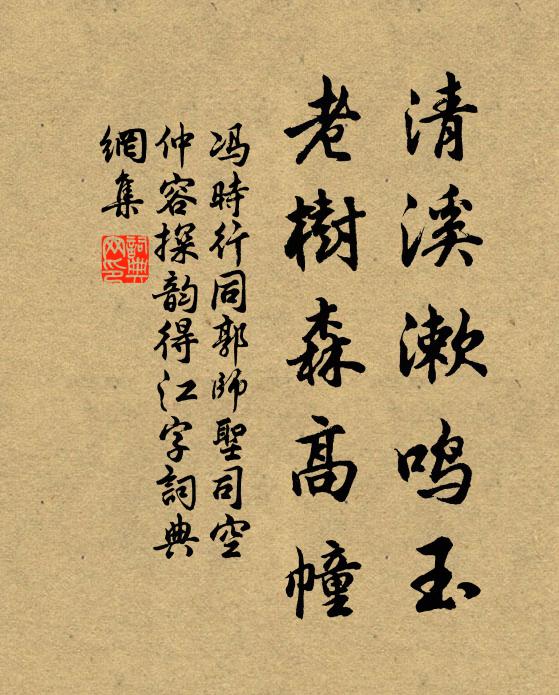 清溪漱鸣玉
老樹森高幢
冯時行同郭師聖司空
仲容探韵得江字詞典
網集
詞典网印